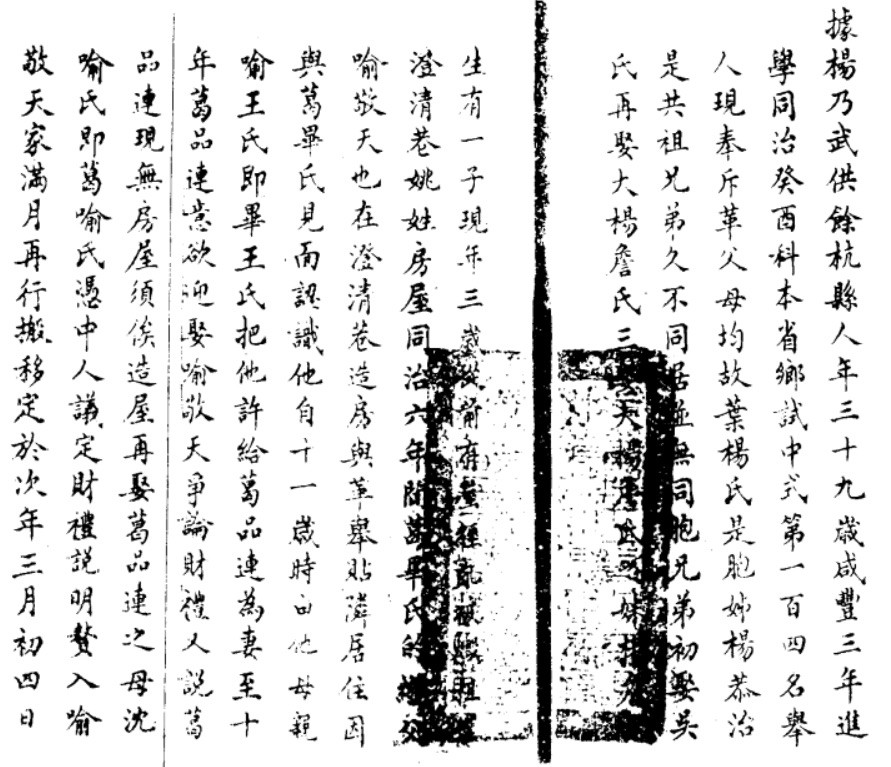 據楊乃武供餘杭縣人年三十九歲咸豐三年進
學同治癸酉科本省鄉試中式第一百四名舉
人現奉斥革父母均故葉楊氏是胞姊楊恭治
是共祖兄弟久不同居並無同胞兄弟初娶吳
氏再娶大楊詹氏三娶
生有一子現年三歲
澄清巷姚姓房屋同治六年間葛畢氏的繼父
喻敬天也在澄清巷造房與革舉貼隣居住因
與葛畢氏見面認識他自十一歲時由他母親
喻王氏即畢王氏把他許給葛品連為妻至十
年葛品連意欲迎娶喻敬天爭論財禮又說葛
品連現無房屋須俟造屋再娶葛品連之母沈
喻氏即葛喻氏憑中人議定財禮說明贅入喻
敬天家滿月再行搬移定於次年三月初四日